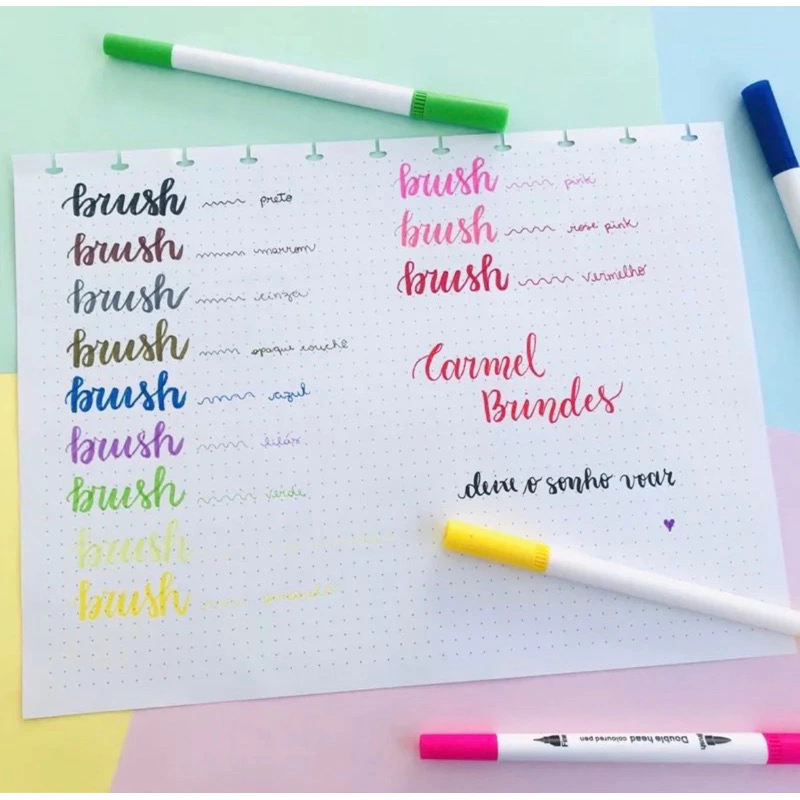 brush preto
brush marrom
brush cinza
brush opaqui couchê
brush azul
brush lilás
brush verde
brush
brush
brush pink
brush rose pink
brush vermelho
Carmel
Brindes
deixe o sonho voar
Fine Double head coloured pen Brush